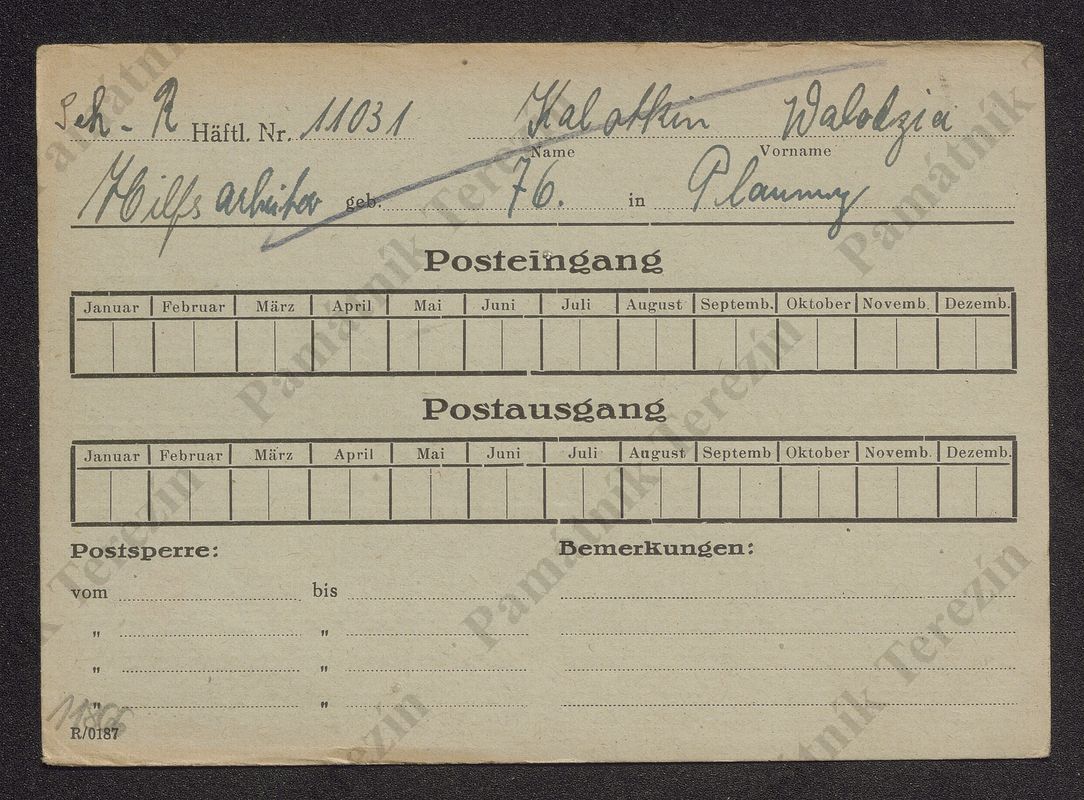 Sch - R Häftl. Nr. 11031 Kalotkin Walodzia
Name Vorname
Hilfsarbeiter geb. 76. in
Posteingang
Januar Februar März April Mai Juni Juli August Septemb. Oktober Novemb. Dezemb.
Postausgang
Januar Februar März April Mai Juni Juli August Septemb Oktober Novemb. Dezemb.
Postsperre: Bemerkungen:
vom bis
" "
" "
" "
R/0187
Památník Terezín